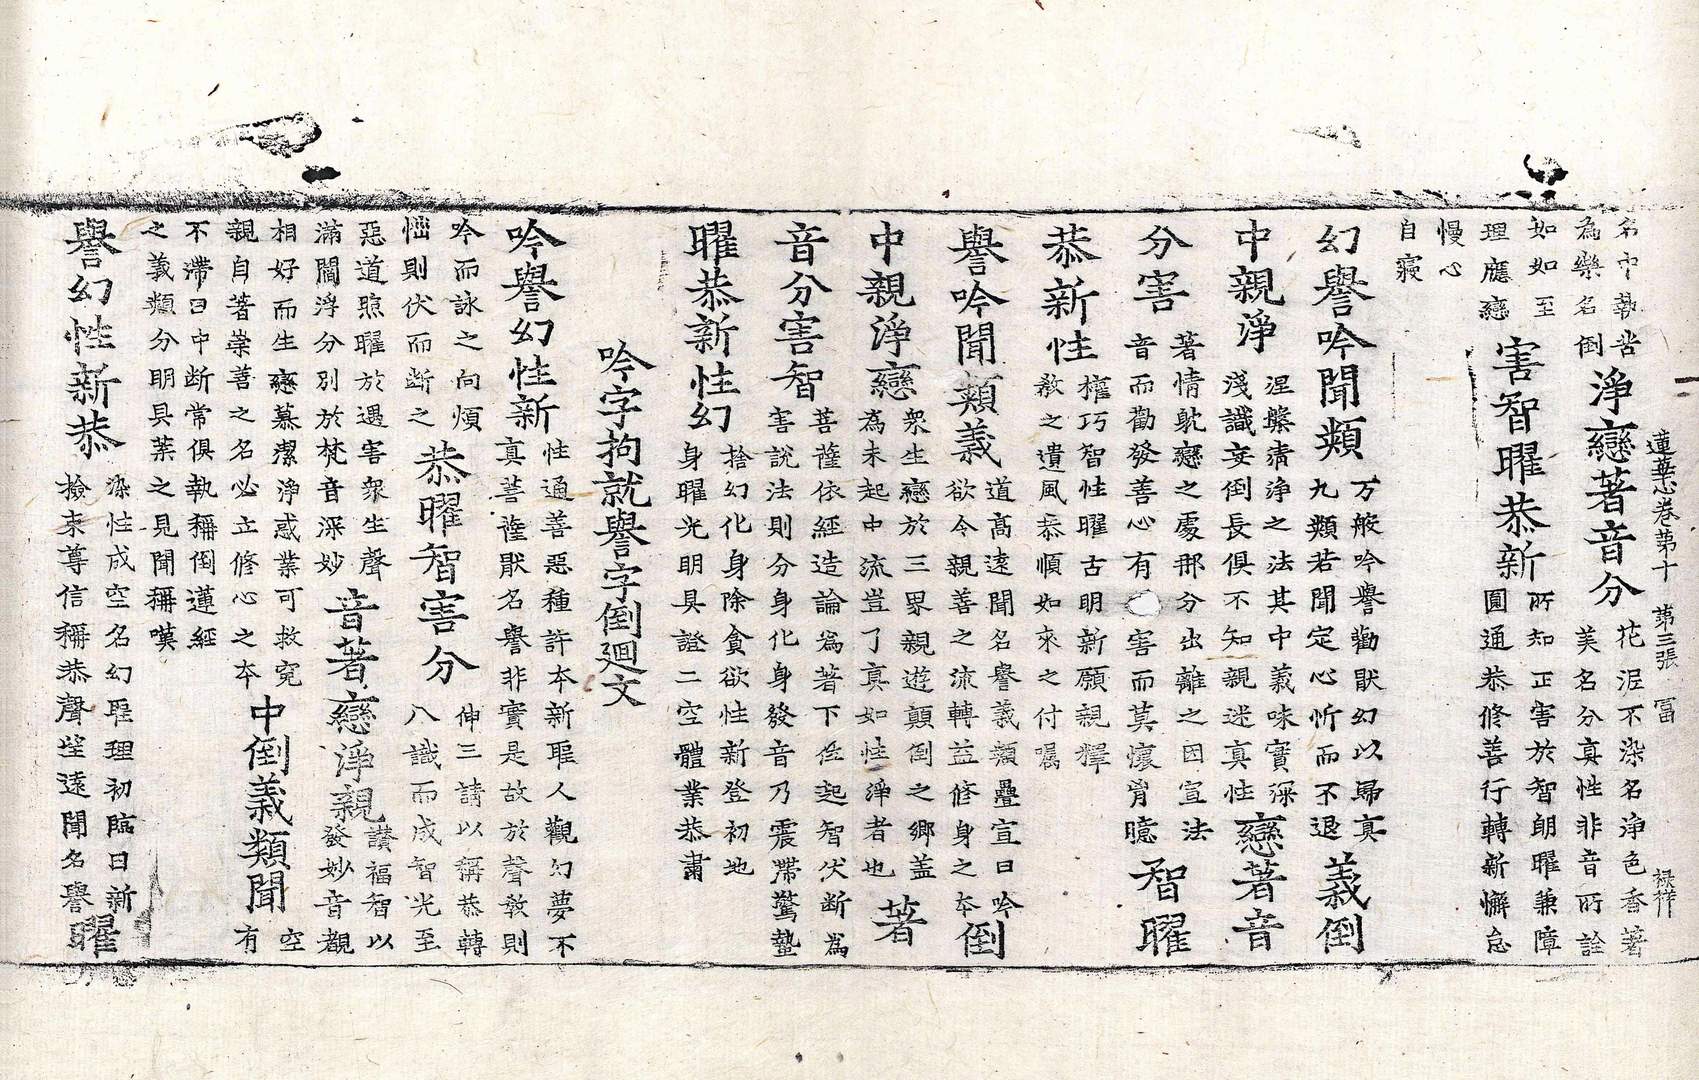 蓮華心卷第十 第三張 冨 祿祥
名中執皆
為樂名倒
淨戀著音分
花泥不染名淨色香著
美名分真性非音所詮
如如至
理應戀
害智曜恭新
所知正害於智朗曜兼障
圓通恭修善行轉新懈怠
慢心
自寢
幻譽吟聞類
万般吟譽勸猒幻以歸真
九類若聞定心忻而不退
義倒
中親淨
涅槃清淨之法其中義味實深
淺識妄倒長俱不知親迷真性
戀著音
分害
著情躭戀之處那分出離之因宣法
音而勸發善心有害而莫懷胷臆
智曜
恭新性
權巧智性曜古明新願親釋
教之遺風恭順如來之付囑
譽吟聞類義
道髙遠聞名譽義類疊宣曰吟
欲令親善之流轉益修身之本
倒
中親淨戀
衆生戀於三界親遊顛倒之鄉盖
為未起中流豈了真如性淨者也
著
音分害智
菩薩依經造論為著下任起智伏断為
害說法則分身化身發音乃震滞驚蟄
曜恭新性幻
捨幻化身除貪欲性新登初地
身曜光明具證二空體業恭肅
吟字拘就譽字倒迴文
吟譽幻性新
性通善惡種許本新聖人觀幻夢不
真菩薩猒名譽非實是故於聲教則
吟而詠之向煩
惱則伏而断之
恭曜智害分
伸三請以稱恭轉
八識而成智光至
惡道照曜於遇害衆生聲
滿閻浮分別於梵音深妙
音著戀淨親
讃福智以
發妙音觀
相好而生戀慕潔淨惑業可救寃
親自著崇善之名必立修心之本
中倒義類聞
空
有
不滯曰中断常俱執稱倒違經
之義類分明具葉之見聞稱嘆
譽幻性新恭
染性成空名幻聖理初臨日新
撿束尊信稱恭聲望遠聞名譽
曜